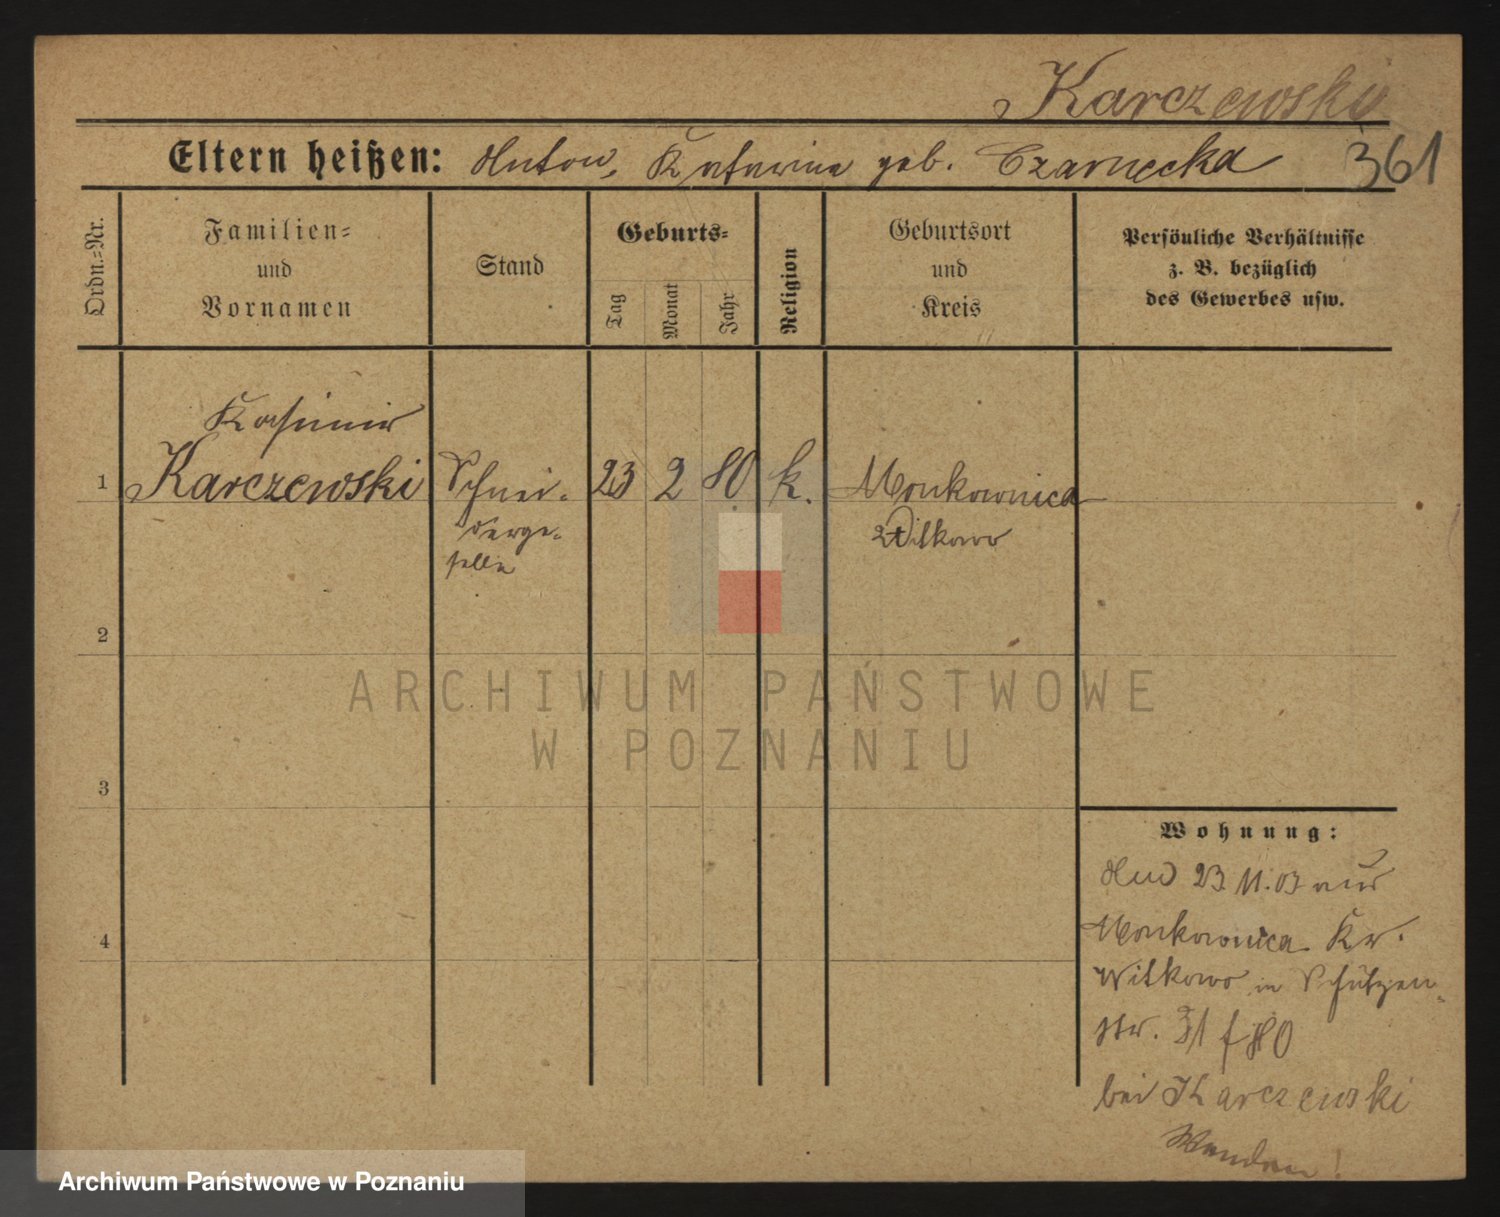 Karczewski
361
Eltern heißen: Anton, Katarina geb. Czarnecka
Ordn.-Nr.
Familien-
und
Vornamen
Stand
Geburts-
Tag
Monat
Jahr
Religion
Geburtsort
und
Kreis
Persönliche Verhältnisse
z. B. bezüglich
des Gewerbes usw.
Kasimir
1 Karczewski Schnei- 23 2 80 k. Monkownica
derge- Witkowo
selle
2
3
4
Wohnung:
23 11.03 aus
Monkownica Kr.
Witkowo in Schützen-
str. 31
bei Karczewski
Wenden!
ARCHIWUM PAŃSTWOWE
W POZNANIU
Archiwum Państwowe w Poznaniu